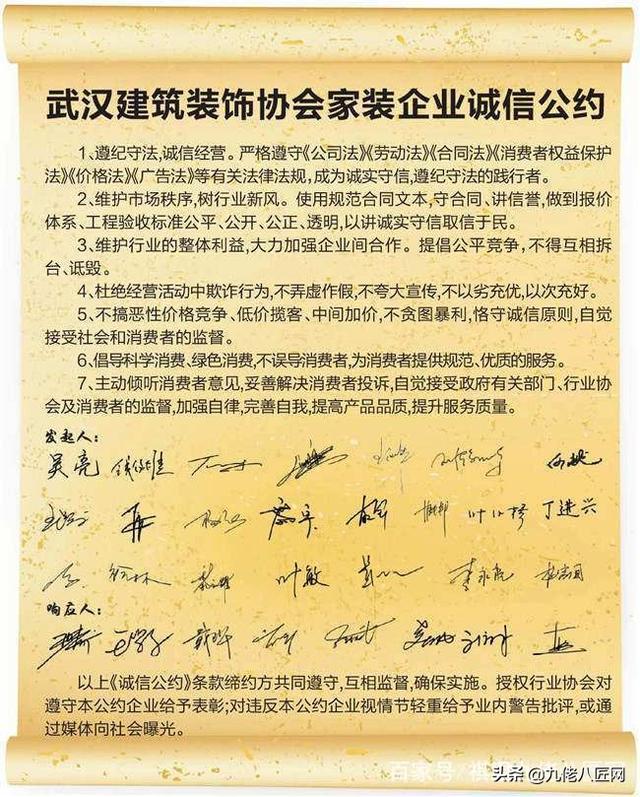 武汉建筑装饰协会家装企业诚信公约
1、遵纪守法,诚信经营。严格遵守《公司法》《劳动法》《合同法》《消费者权益保护
法》《价格法》《广告法》等有关法律法规,成为诚实守信,遵纪守法的践行者。
2、维护市场秩序,树行业新风。使用规范合同文本,守合同、讲信誉,做到报价
体系、工程验收标准公平、公开、公正、透明,以讲诚实守信取信于民。
3、维护行业的整体利益,大力加强企业间合作。提倡公平竞争,不得互相拆
台、诋毁。
4、杜绝经营活动中欺诈行为,不弄虚作假,不夸大宣传,不以劣充优,以次充好。
5、不搞恶性价格竞争、低价揽客、中间加价,不贪图暴利,恪守诚信原则,自觉
接受社会和消费者的监督。
6、倡导科学消费、绿色消费,不误导消费者,为消费者提供规范、优质的服务。
7、主动倾听消费者意见,妥善解决消费者投诉,自觉接受政府有关部门、行业协
会及消费者的监督,加强自律,完善自我,提高产品品质,提升服务质量。
发起人:
吴亮
丁进兴
叶敏 李永亮
响应人:
以上《诚信公约》条款缔约方共同遵守,互相监督,确保实施。授权行业协会对
遵守本公约企业给予表彰;对违反本公约企业视情节轻重给予业内警告批评,或通
过媒体向社会曝光。
百家号/
头条@九佬八匠网